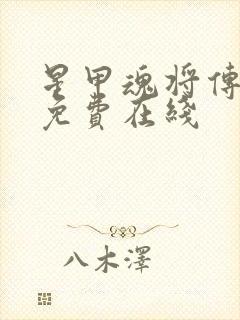 星甲魂将傳
免費在綫
八木澤